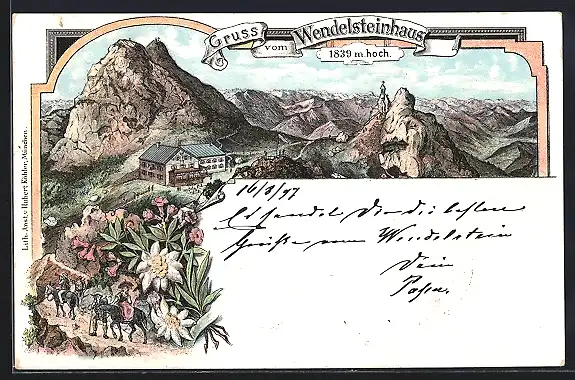 Gruss
vom Wendelsteinhaus
1839 m. hoch.
Lith. Anst. v. Hubert Köhler, München.
16/8/97
Es sendet Dir die besten
Grüße vom Wendelstein
Dein
Papa.